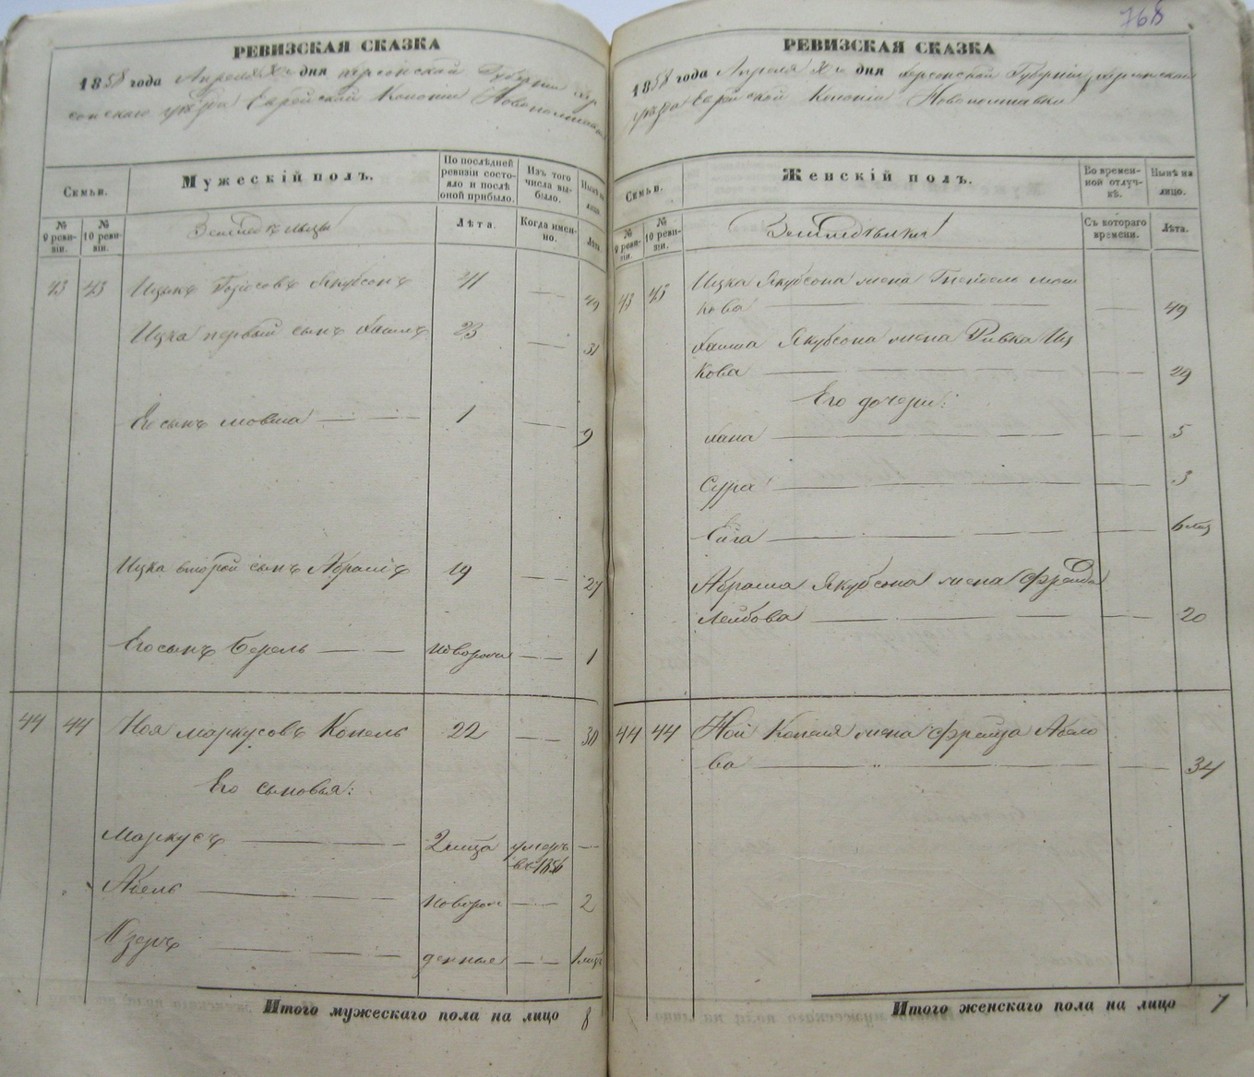 768
РЕВИЗСКАЯ СКАЗКА
1858 года Апреля дня Херсонской Губернии Хер
сонскаго уѣзда Еврейской Колоніи Новополтавки
Семьи.
Мужескій полъ.
По послѣдней
ревизіи состо-
яло и послѣ
оной прибыло.
Изъ того
числа вы-
было.
Нынѣ на
лицо.
№
9 реви-
зіи.
№
10 реви-
зіи.
Земледѣльцы
Лѣта.
Когда имен-
но.
Лѣта
43 43 Ицикъ Якубсонъ 41 — 49
Ицка первый сынъ Хаимъ 23 — 31
Его сынъ Мовша — 1 — 9
Ицка второй сынъ Абрамъ 19 — 27
Его сынъ Берель — новорож — 1
44 44 Ноя Маркусовъ Копель 22 — 30
Его сыновья:
Маркусъ — 2 мѣ умеръ —
въ 185
Абель — новорож — 2
Узеръ — денные — 1 мѣ
Итого мужескаго пола на лицо 8
РЕВИЗСКАЯ СКАЗКА
1858 года Апреля дня Херсонской Губерніи Херсонскаго
уѣзда Еврейской Колоніи Новополтавки
Семьи.
Женскій полъ.
Во времен-
ной отлуч-
кѣ.
Нынѣ на
лицо.
№
9 реви-
зіи.
№
10 реви-
зіи.
Земледѣльцы
Съ котораго
времени.
Лѣта.
43 43 Ицка Якубсона жена Мош
кова — — 49
Хаима Якубсона жена Ривка Иц
кова — — 29
Его дочери:
Хана — — 5
Сура — — 3
Гига — — 6 мѣ
Абрама Якубсона жена Фрейда
Лейбова — — 20
44 44 Ной Копеля жена Фрейда Абело
ва — — 34
Итого женскаго пола на лицо 7